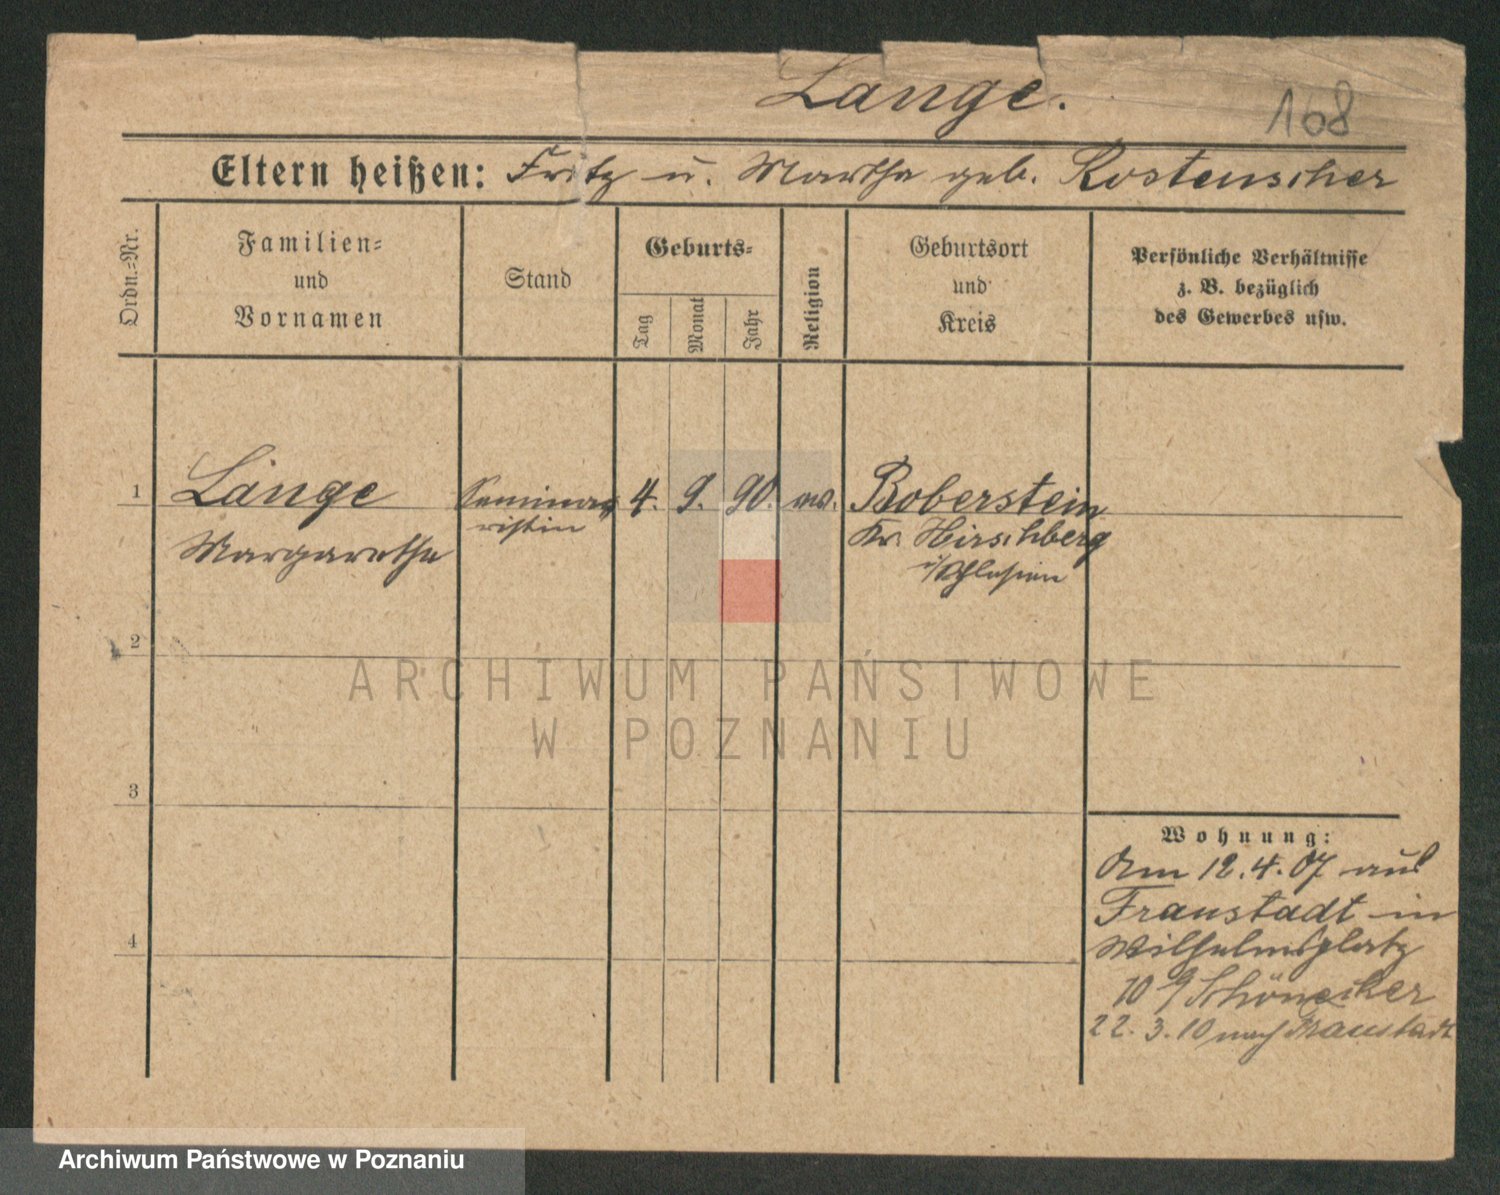 Lange.
168
Eltern heißen: Fritz u. Martha geb. Rostenscher
Ordn.=Nr.
Familien=
und
Vornamen
Stand
Geburts=
Tag
Monat
Jahr
Religion
Geburtsort
und
Kreis
Persönliche Verhältnisse
z. B. bezüglich
des Gewerbes usw.
1
Lange
Margarethe
Seminaristin
4. 9. 90.
Boberstein
Kr. Hirschberg
i/Schlesien
2
3
4
Wohnung:
Am 12.4.07 aus
Fraustadt in
Wilhelmsplatz
10
22.3.10 nach Fraustadt
ARCHIWUM PAŃSTWOWE
W POZNANIU
Archiwum Państwowe w Poznaniu